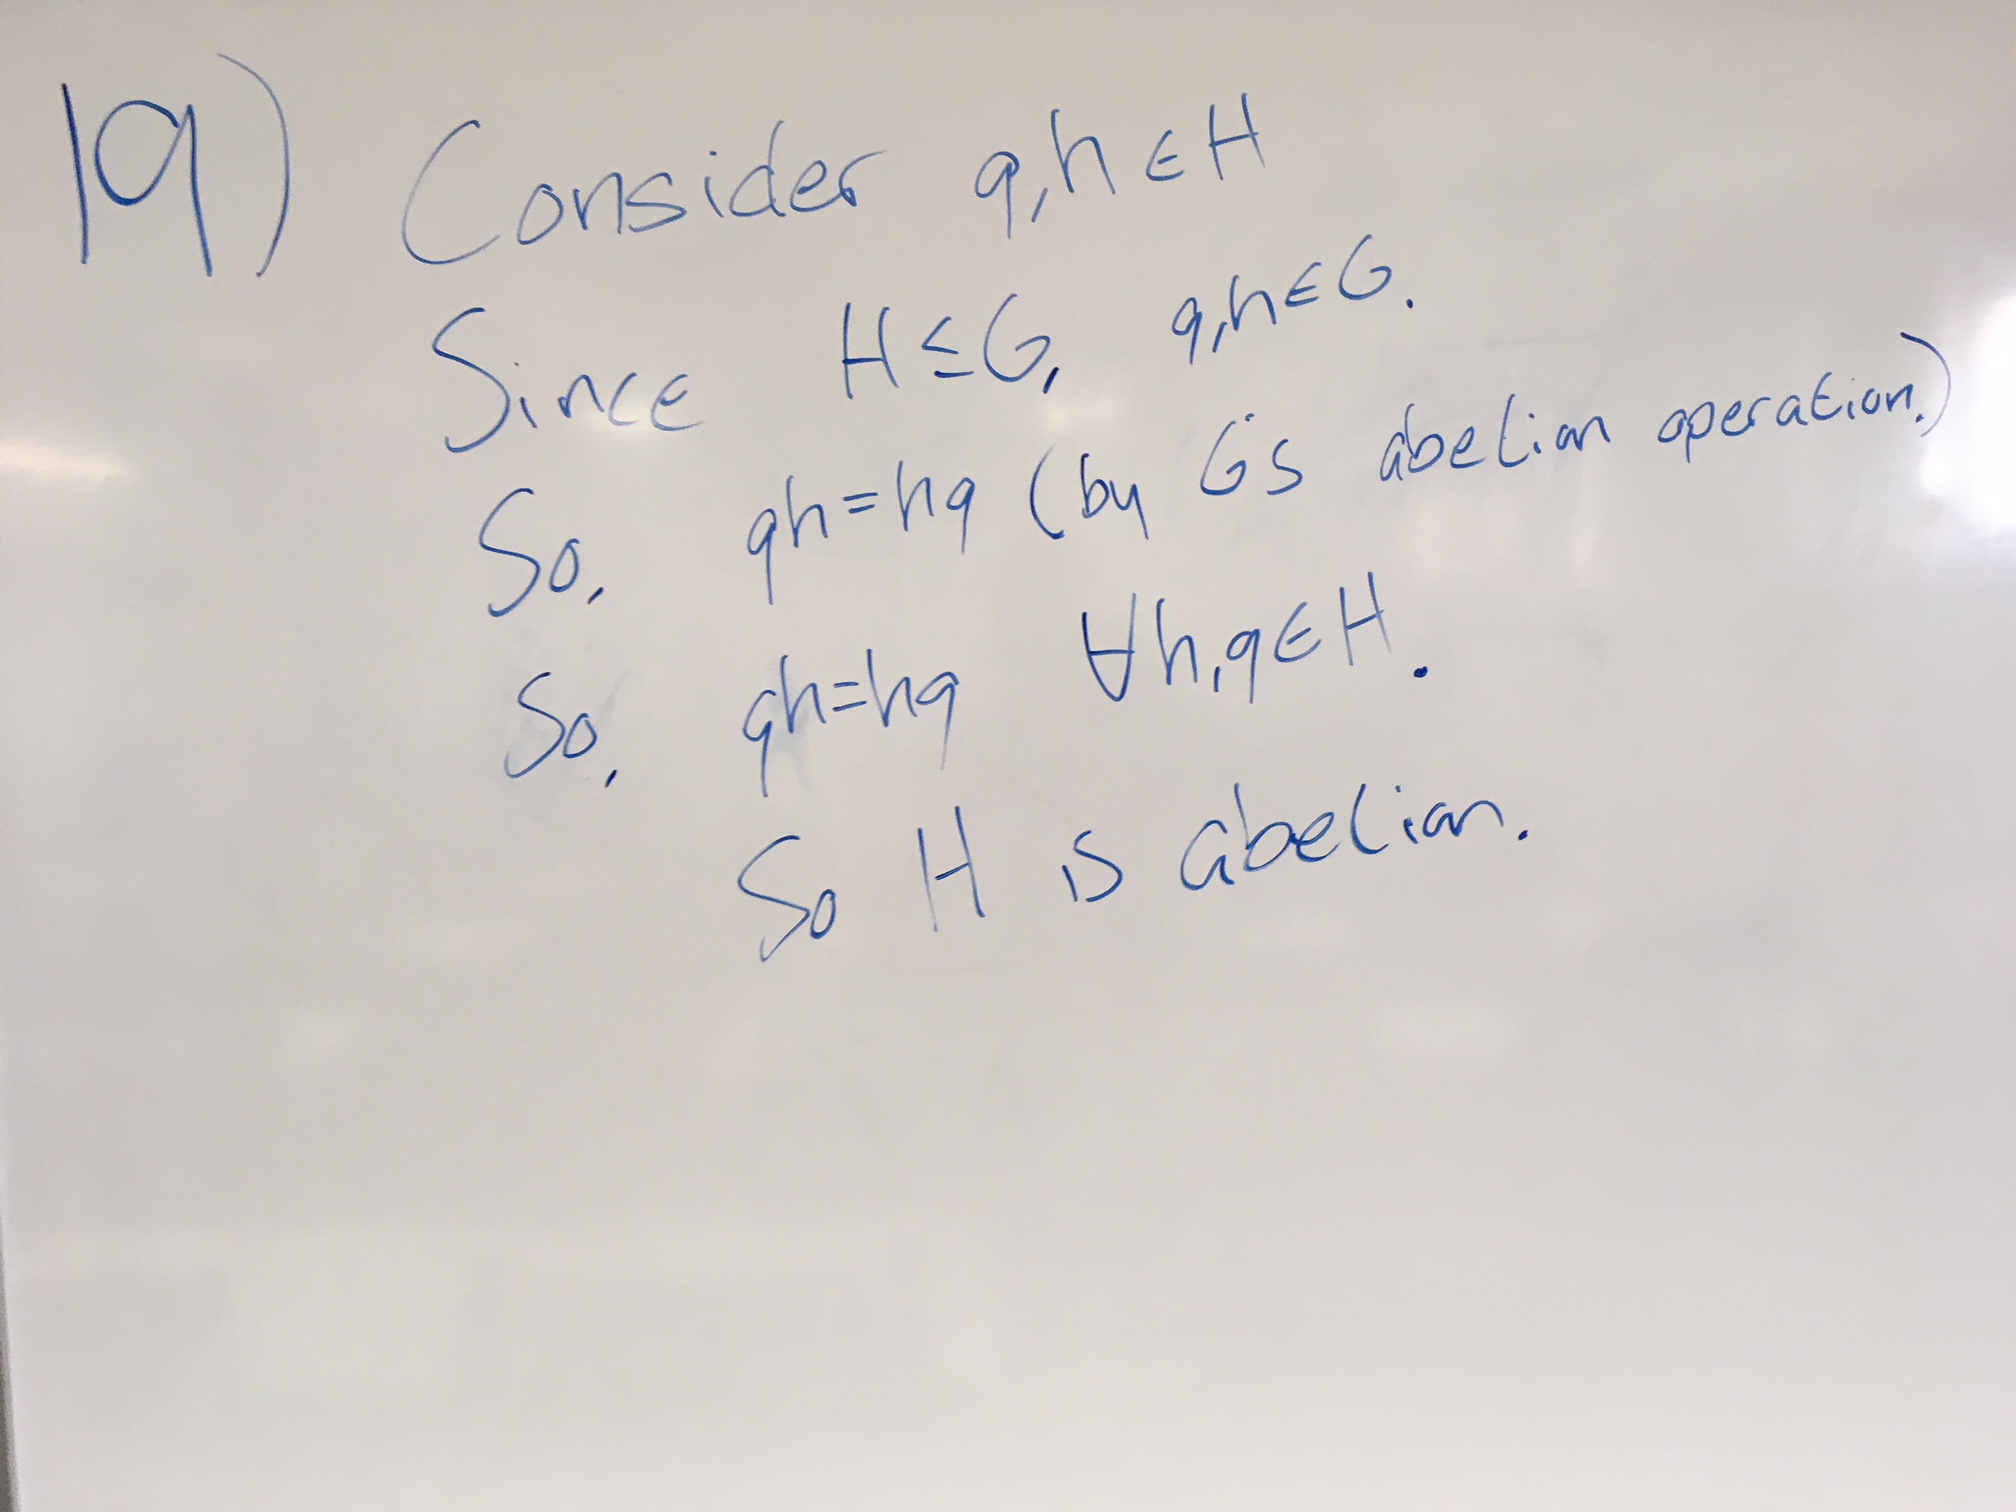 19) Consider g,h ∈ H
Since H ≤ G, g,h ∈ G.
So, gh = hg (by G's abelian operation.)
So, gh = hg ∀h,g ∈ H.
So H is abelian.